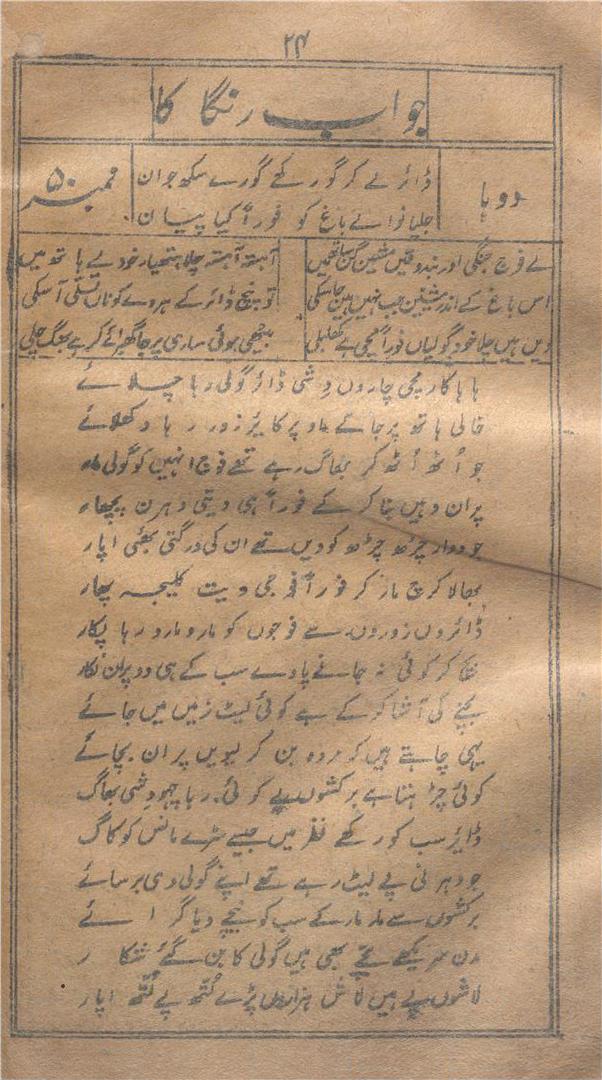 ۲۴
جواب رنگا کا
دوہا
ڈائر لے کر گور کھے گورے سکھ جوان
جلیانوالے باغ کو فوراً کیا پیان
نمبر ۵۰
لے فوج جنگی اور بندوقیں مشین گن ساتھ میں
آہستہ آہستہ چلا ہتھیار خود لیے ہاتھ میں
اس باغ کے اندر مشین جب نہیں ہیں جا سکی
تو پنچ ڈائر کے ہردے کو ناں تسلی آ سکی
دیں ہیں چلا خود گولیاں فوراً مچی ہے کھلبلی
بیٹھی ہوئی ساری پرجا گھبرائے کر ہے بھگ چلی
ہاہاکار مچی چاروں دشی ڈائر گولی رہا چلائے
خالی ہاتھ پرجا کے اوپر کایر زور رہا دکھلائے
جو اُٹھ اُٹھ کر بھاگ رہے تھے فوج انہیں کو گولی
پران وہیں بنا کر کے فوراً ہی دیتی دہرن
جو دوار چڑھ چڑھ کودیں تھے ان کی درگتی بھئی اپار
بھالا کرچ مار کر فوراً فوجی دیت کلیجہ پھار
ڈائر وں زوروں سے فوجوں کو مارو مارو رہا پکار
کر کوئی نہ جانے پاوے سب کے ہی دو پران نکار
بچنے کی آشا کر کے ہے کوئی لیٹ زمیں میں جائے
یہی چاہتے ہیں کہ مردہ بن کر لیویں پران بچائے
کوئی چڑھتا ہے برکشوں پے کوئی رہا چہو دشی بھاگ
ڈایر سب کو رکھے نظر میں جیسے سڑے مانس کو کاگ
جو دہرنی پے لیٹ رہے تھے اپنے گولی دی برسائے
برکشوں سے مار مار کے سب کو نیچے دیا گرائے
دن کے بچے بھی ہیں گولی کا بن گئے شکار
لاشوں پے ہیں لاش ہزاروں پڑے گتھ پے گتھ اپار